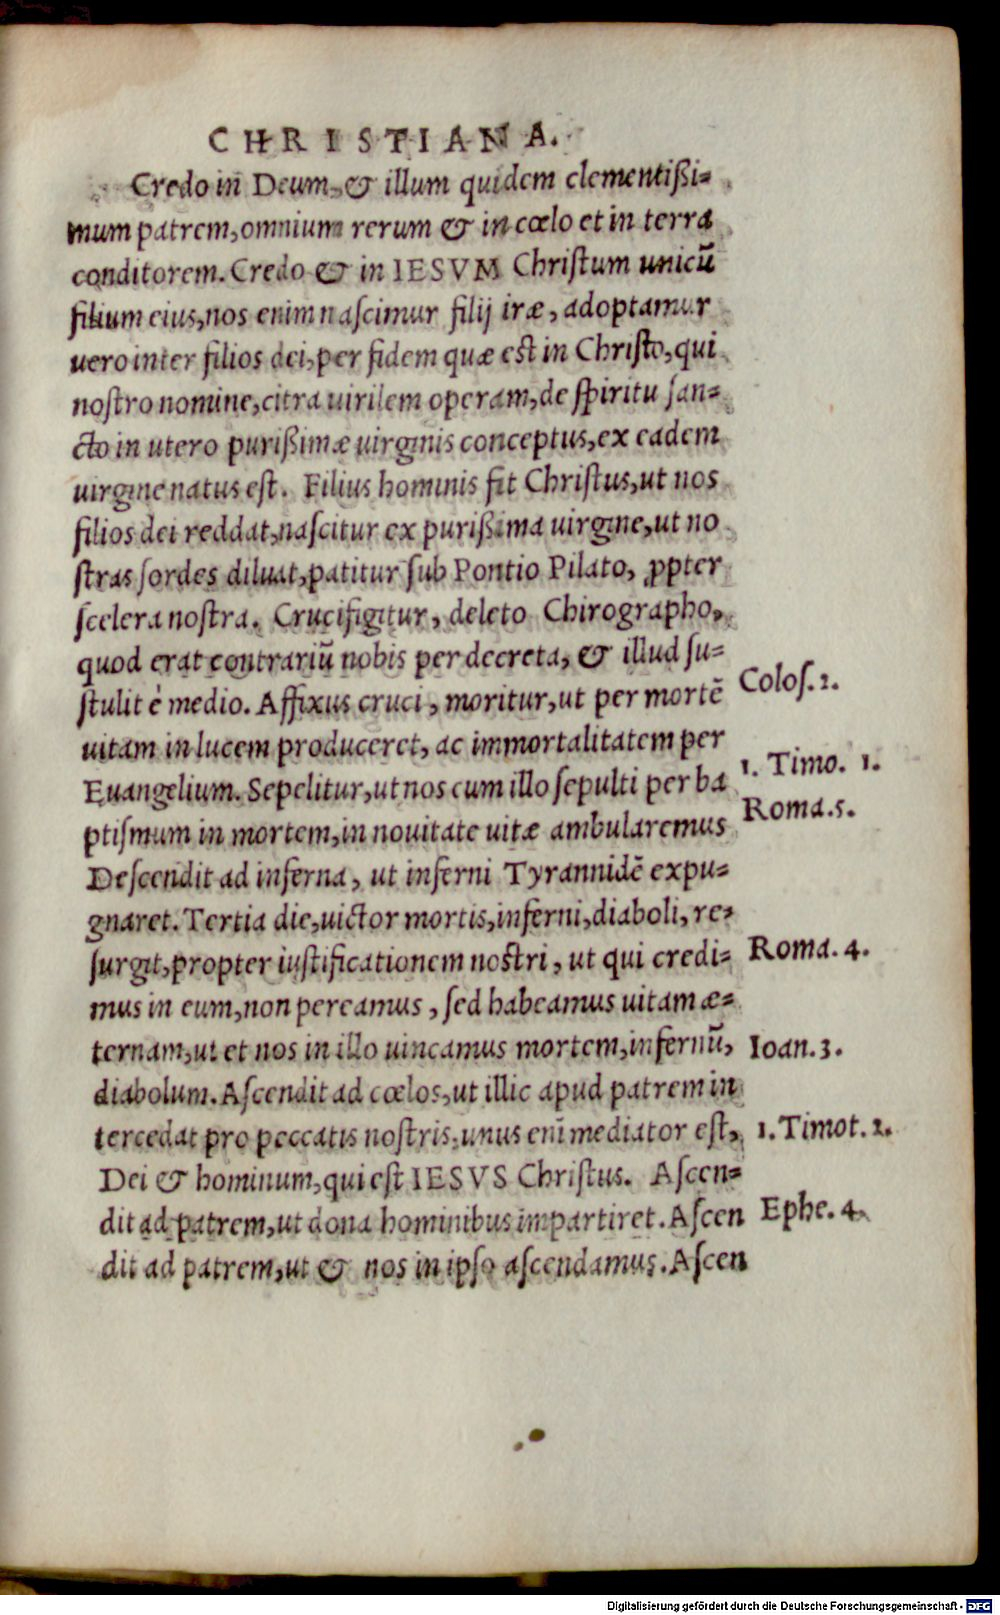 CHRISTIANA.
Credo in Deum, & illum quidem clementißi-
mum patrem, omnium rerum & in cœlo et in terra
conditorem. Credo & in IESVM Chriſtum unicũ
filium eius, nos enim naſcimur filij iræ, adoptamur
vero inter filios dei, per fidem quæ est in Chriſto, qui
noſtro nomine, citra uirilem operam, de ſpiritu ſan-
cto in utero purißimæ uirginis conceptus, ex eadem
uirgine natus est. Filius hominis fit Chriſtus, ut nos
filios dei reddat, naſcitur ex purißima uirgine, ut no
ſtras ſordes diluat, patitur ſub Pontio Pilato, ꝓpter
ſcelera noſtra. Crucifigitur, deleto Chirographo,
quod erat contrariũ nobis per decreta, & illud ſu-
ſtulit è medio. Affixus cruci, moritur, ut per mortẽ
uitam in lucem produceret, ac immortalitatem per
Euangelium. Sepelitur, ut nos cum illo ſepulti per ba
ptiſmum in mortem, in nouitate uitæ ambularemus
Deſcendit ad inferna, ut inferni Tyrannidẽ expu-
gnaret. Tertia die, uictor mortis, inferni, diaboli, re-
ſurgit, propter iuſtificationem noſtri, ut qui credi-
mus in eum, non pereamus, ſed habeamus uitam æ-
ternam, ut et nos in illo uincamus mortem, infernũ,
diabolum. Aſcendit ad cœlos, ut illic apud patrem in
tercedat pro peccatis noſtris, unus enĩ mediator eſt,
Dei & hominum, qui eſt IESVS Chriſtus. Aſcen-
dit ad patrem, ut dona hominibus impartiret. Aſcen
dit ad patrem, ut & nos in ipſo aſcendamus. Aſcen
Coloſ. 2.
1. Timo. 1.
Roma. 5.
Roma. 4.
Ioan. 3.
1. Timot. 2.
Ephe. 4.
Digitalisierung gefördert durch die Deutsche Forschungsgemeinschaft - DFG